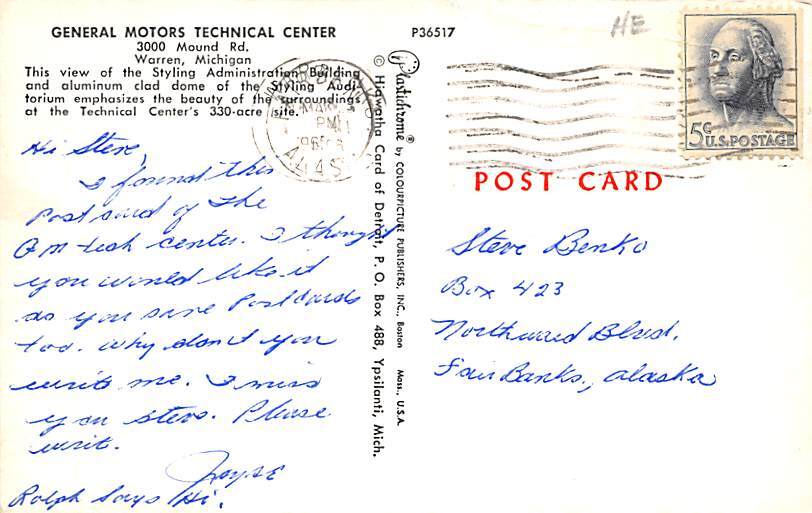 GENERAL MOTORS TECHNICAL CENTER
3000 Mound Rd.
Warren, Michigan
This view of the Styling Administration Building
and aluminum clad dome of the Styling Audi-
torium emphasizes the beauty of the surroundings
at the Technical Center's 330-acre site.
Hi Steve,
I found this
postcard of the
GM tech center. I thought
you would like it
as you save Postcards
too. why don't you
write me. I miss
you steve. Please
writ.
Joyce
Ralph Says Hi.
Plastichrome® by COLOURPICTURE PUBLISHERS, INC., Boston Mass., U.S.A.
© Hiawatha Card of Detroit, P. O. Box 488, Ypsilanti, Mich.
P36517
HE
PM
ALAS
5¢
U.S. POSTAGE
POST CARD
Steve Benko
Box 423
Northward Blvd.
FairBanks, Alaska